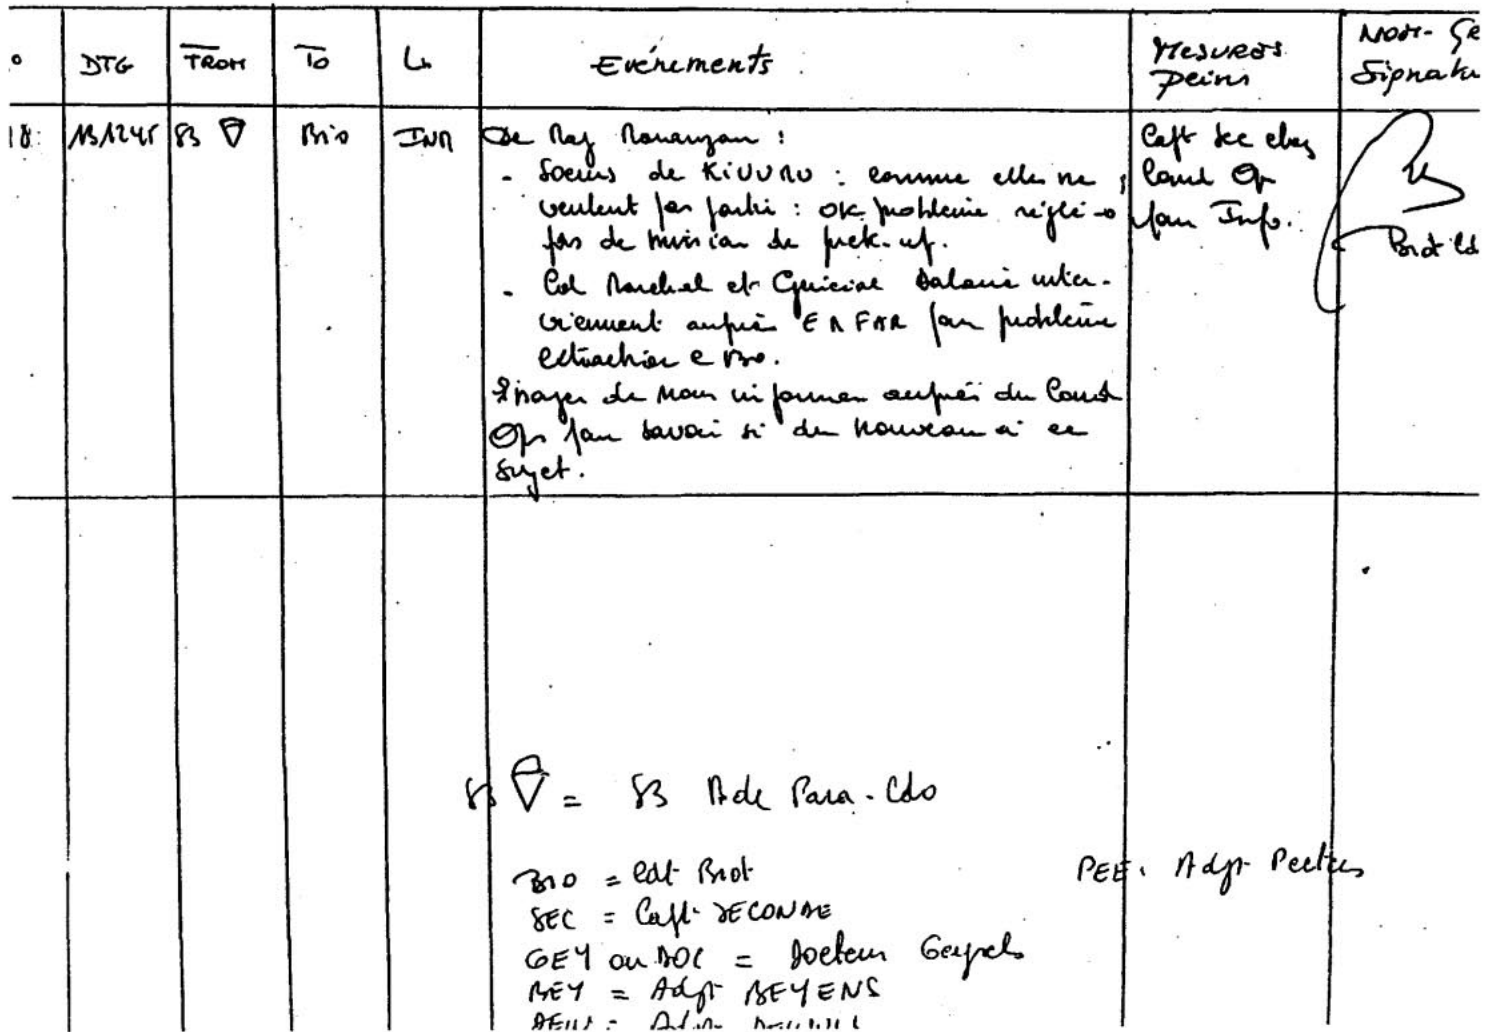 DTG FROM To Ln Evénements Mesures prises Nom - Gr Signatu
18 131245 S3 Bio INR De Maj :
- Soeurs de KIVURU : comme elles ne
veulent pas partir : OK problème réglé →
pas de mission de pick-up.
- Col Marchal et Général Dalaire inter-
viennent auprès EM FAR pour problème
extraction
Essayer de nous informer auprès du Comd
Ops pour savoir si du nouveau à ce
sujet.
Capt Sec chez
Comd Op
pour Info.
Biot
S3 = S3 Bde Para-Cdo
BIO = Cdt Biot
SEC = Capt SECONDE
GEY ou DOC = Docteur
BEY = Adjt BEYENS
PEE : Adjt Peeters